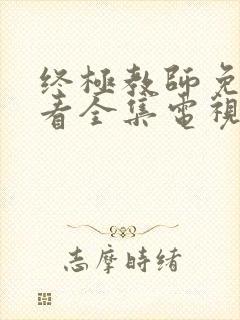 终極教師免
看全集電視
志摩時緒